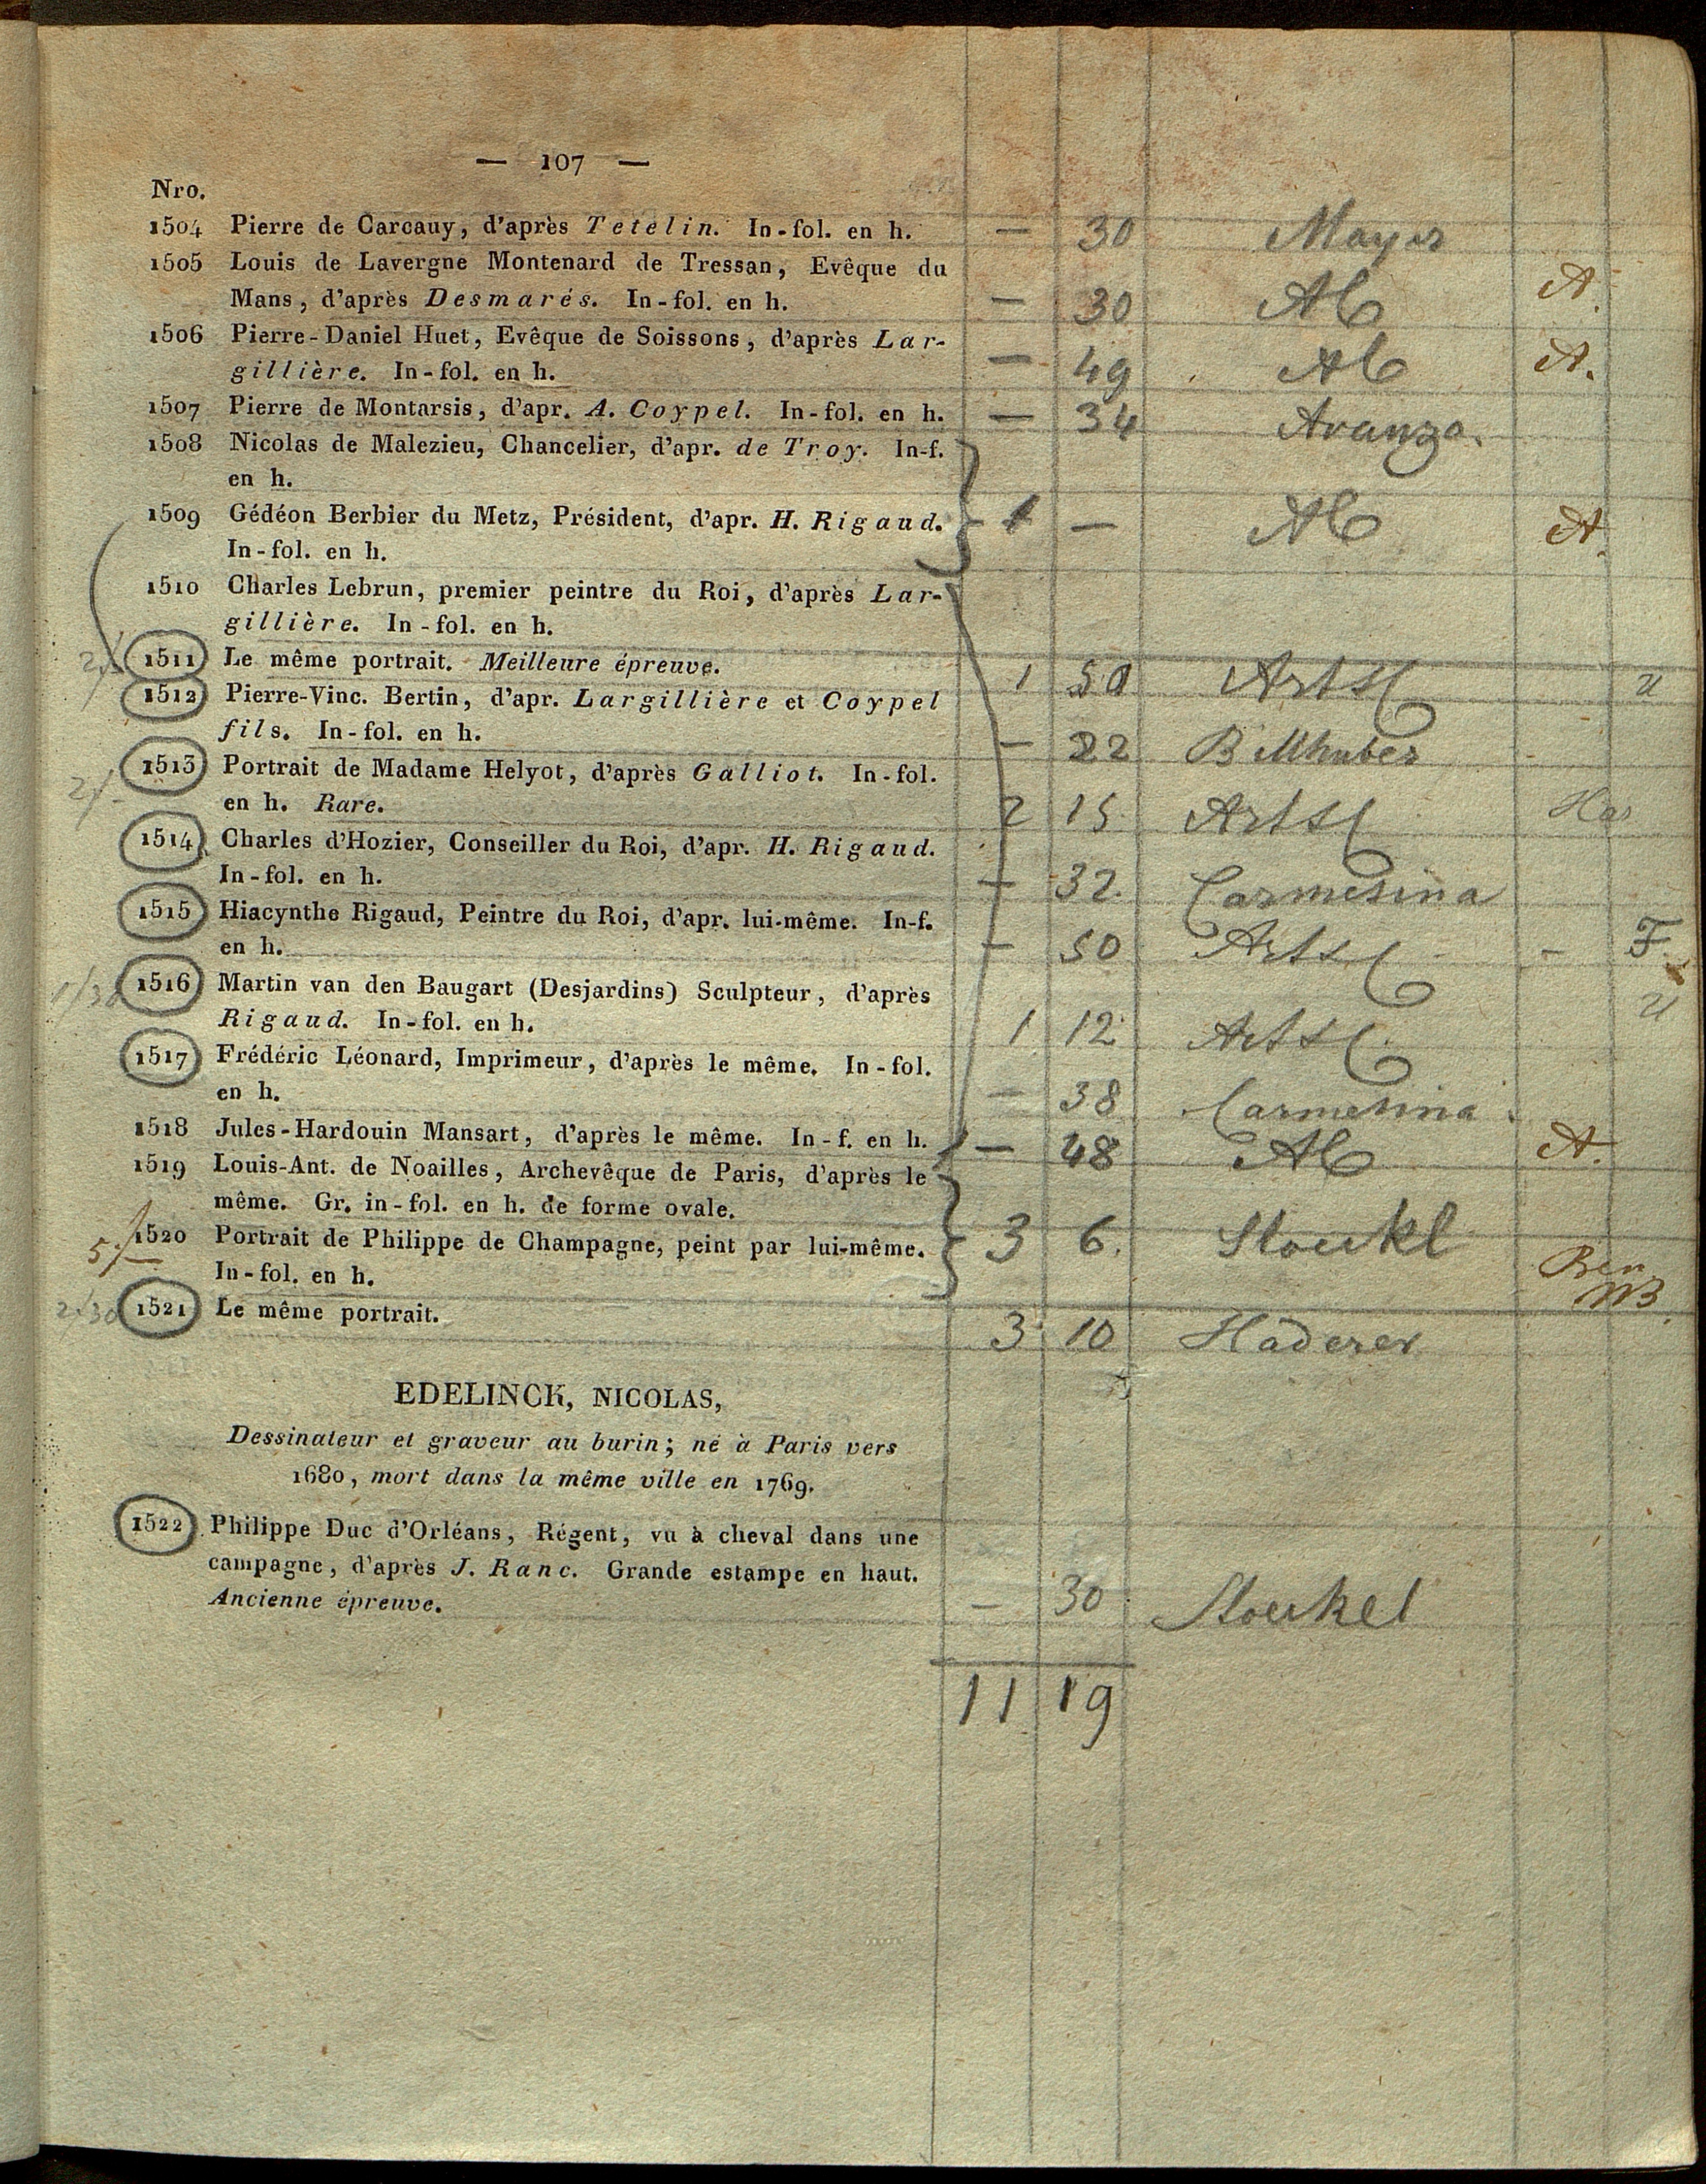 — 107 —
Nro.
1504 Pierre de Carcauy, d'après Tetelin. In-fol. en h. — 30 Mayer
1505 Louis de Lavergne Montenard de Tressan, Evêque du
Mans, d'après Desmarés. In-fol. en h. — 30 AC A.
1506 Pierre-Daniel Huet, Evêque de Soissons, d'après Lar-
gillière. In-fol. en h. — 49 AC A.
1507 Pierre de Montarsis, d'apr. A. Coypel. In-fol. en h. — 34 Aranza.
1508 Nicolas de Malezieu, Chancelier, d'apr. de Troy. In-f.
en h.
1509 Gédéon Berbier du Metz, Président, d'apr. H. Rigaud. 1 — AC A.
In-fol. en h.
1510 Charles Lebrun, premier peintre du Roi, d'après Lar-
gillière. In-fol. en h.
1511 Le même portrait. Meilleure épreuve. 1 50 Arts u
1512 Pierre-Vinc. Bertin, d'apr. Largillière et Coypel
fils. In-fol. en h. — 22
2/- 1513 Portrait de Madame Helyot, d'après Galliot. In-fol.
en h. Rare. 2 15 Arts
1514 Charles d'Hozier, Conseiller du Roi, d'apr. H. Rigaud.
In-fol. en h. — 32. Carmesina
1515 Hiacynthe Rigaud, Peintre du Roi, d'apr. lui-même. In-f.
en h. — 50 Arts - F.
1/30 1516 Martin van den Baugart (Desjardins) Sculpteur, d'après
Rigaud. In-fol. en h. 1 12 Arts u
1517 Frédéric Léonard, Imprimeur, d'après le même. In-fol.
en h. — 38 Carmesina
1518 Jules-Hardouin Mansart, d'après le même. In-f. en h. — 48 AC A.
1519 Louis-Ant. de Noailles, Archevêque de Paris, d'après le
même. Gr. in-fol. en h. de forme ovale.
5/- 1520 Portrait de Philippe de Champagne, peint par lui-même. 3 6. Stoeckl
In-fol. en h.
2/30 1521 Le même portrait. 3 10 Haderer
EDELINCK, NICOLAS,
Dessinateur et graveur au burin; né à Paris vers
1680, mort dans la même ville en 1769.
1522 Philippe Duc d'Orléans, Régent, vu à cheval dans une
campagne, d'après J. Ranc. Grande estampe en haut.
Ancienne épreuve. — 30 Stoeckel
11 19